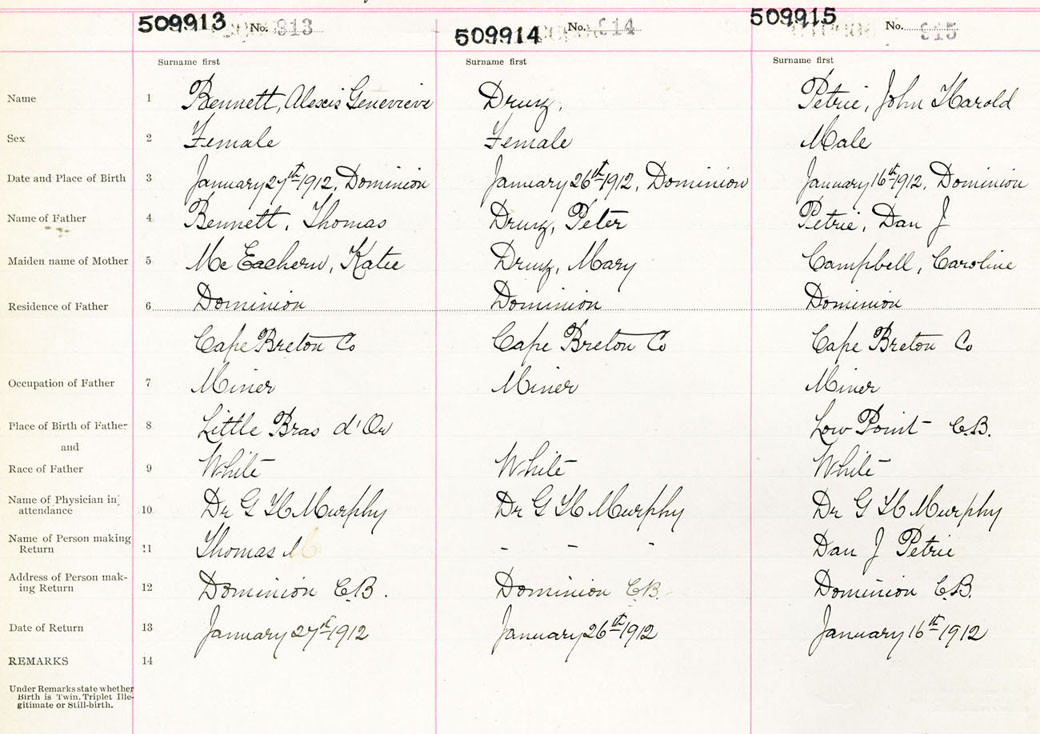 509913 No. 913 509914 No. 914 509915 No. 915
Surname first Surname first Surname first
Name 1 Bennett, Alexis Genevieve Druz, Petrie, John Harold
Sex 2 Female Female Male
Date and Place of Birth 3 January 27th 1912, Dominion January 26th 1912, Dominion January 16th 1912, Dominion
Name of Father 4 Bennett, Thomas Druz, Peter Petrie, Dan J
Maiden name of Mother 5 Mc Eachern, Katie Druz, Mary Campbell, Caroline
Residence of Father 6 Dominion Dominion Dominion
Cape Breton Co Cape Breton Co Cape Breton Co
Occupation of Father 7 Miner Miner Miner
Place of Birth of Father 8 Little Bras d'Or Low Point C.B.
and
Race of Father 9 White White White
Name of Physician in attendance 10 Dr G H Murphy Dr G H Murphy Dr G H Murphy
Name of Person making Return 11 Thomas - - - Dan J Petrie
Address of Person mak-
ing Return 12 Dominion C.B. Dominion C.B. Dominion C.B.
Date of Return 13 January 27th 1912 January 26th 1912 January 16th 1912
REMARKS 14
Under Remarks state whether
Birth is Twin, Triplet Ille-
gitimate or Still-birth.